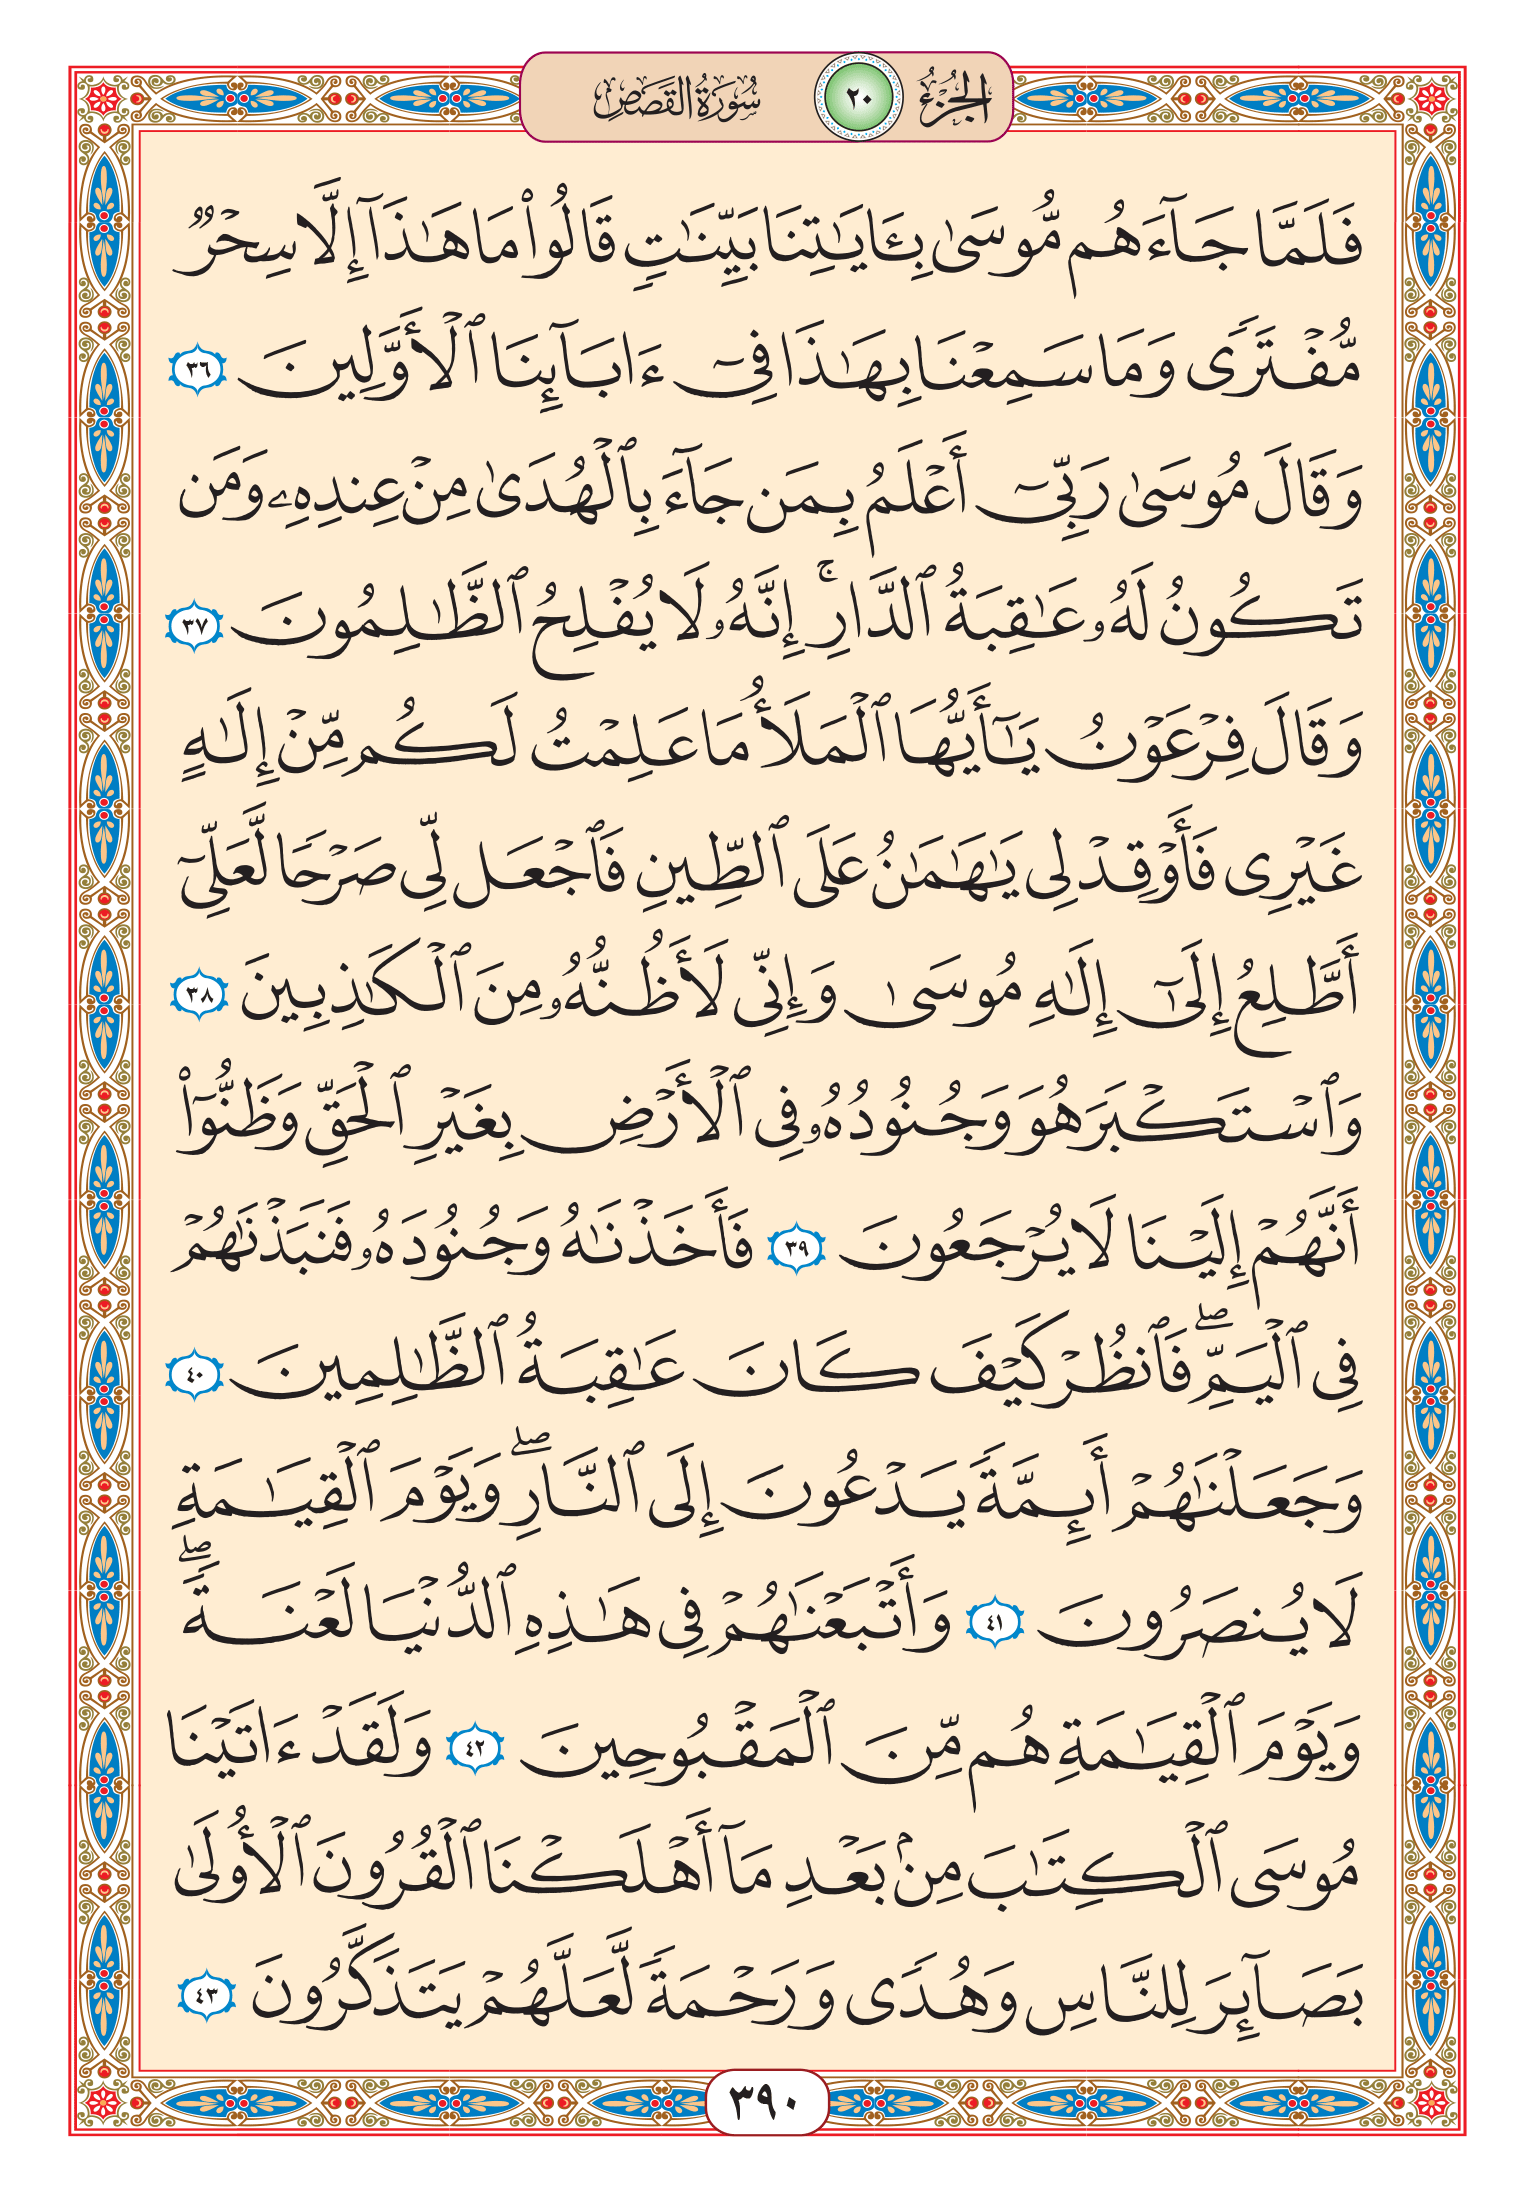 الجُزْءُ ٢٠ سُورَةُ القَصَصِ
فَلَمَّا جَآءَهُم مُّوسَىٰ بِـَٔايَٰتِنَا بَيِّنَٰتٍ قَالُوا۟ مَا هَٰذَآ إِلَّا سِحْرٌ
مُّفْتَرًى وَمَا سَمِعْنَا بِهَٰذَا فِىٓ ءَابَآئِنَا ٱلْأَوَّلِينَ ٣٦
وَقَالَ مُوسَىٰ رَبِّىٓ أَعْلَمُ بِمَن جَآءَ بِٱلْهُدَىٰ مِنْ عِندِهِۦ وَمَن
تَكُونُ لَهُۥ عَٰقِبَةُ ٱلدَّارِ ۚ إِنَّهُۥ لَا يُفْلِحُ ٱلظَّٰلِمُونَ ٣٧
وَقَالَ فِرْعَوْنُ يَٰٓأَيُّهَا ٱلْمَلَأُ مَا عَلِمْتُ لَكُم مِّنْ إِلَٰهٍ
غَيْرِى فَأَوْقِدْ لِى يَٰهَٰمَٰنُ عَلَى ٱلطِّينِ فَٱجْعَل لِّى صَرْحًا لَّعَلِّىٓ
أَطَّلِعُ إِلَىٰٓ إِلَٰهِ مُوسَىٰ وَإِنِّى لَأَظُنُّهُۥ مِنَ ٱلْكَٰذِبِينَ ٣٨
وَٱسْتَكْبَرَ هُوَ وَجُنُودُهُۥ فِى ٱلْأَرْضِ بِغَيْرِ ٱلْحَقِّ وَظَنُّوٓا۟
أَنَّهُمْ إِلَيْنَا لَا يُرْجَعُونَ ٣٩ فَأَخَذْنَٰهُ وَجُنُودَهُۥ فَنَبَذْنَٰهُمْ
فِى ٱلْيَمِّ ۖ فَٱنظُرْ كَيْفَ كَانَ عَٰقِبَةُ ٱلظَّٰلِمِينَ ٤٠
وَجَعَلْنَٰهُمْ أَئِمَّةً يَدْعُونَ إِلَى ٱلنَّارِ ۖ وَيَوْمَ ٱلْقِيَٰمَةِ
لَا يُنصَرُونَ ٤١ وَأَتْبَعْنَٰهُمْ فِى هَٰذِهِ ٱلدُّنْيَا لَعْنَةً ۖ
وَيَوْمَ ٱلْقِيَٰمَةِ هُم مِّنَ ٱلْمَقْبُوحِينَ ٤٢ وَلَقَدْ ءَاتَيْنَا
مُوسَى ٱلْكِتَٰبَ مِنۢ بَعْدِ مَآ أَهْلَكْنَا ٱلْقُرُونَ ٱلْأُولَىٰ
بَصَآئِرَ لِلنَّاسِ وَهُدًى وَرَحْمَةً لَّعَلَّهُمْ يَتَذَكَّرُونَ ٤٣
٣٩٠